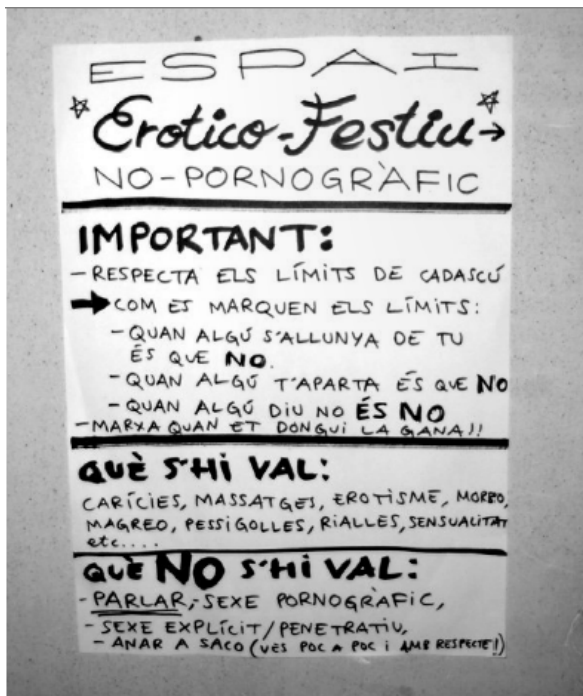 ESPAI
Erotico-Festiu→
NO-PORNOGRÀFIC
IMPORTANT:
-RESPECTA ELS LÍMITS DE CADASCÚ
➡COM ES MARQUEN ELS LÍMITS:
-QUAN ALGÚ S'ALLUNYA DE TU
ÉS QUE NO.
-QUAN ALGÚ T'APARTA ÉS QUE NO
-QUAN ALGÚ DIU NO ÉS NO
-MARXA QUAN ET DONGUI LA GANA!!
QUÈ S'HI VAL:
CARÍCIES, MASSATGES, EROTISME, MORBO,
MAGREO, PESSIGOLLES, RIALLES, SENSUALITAT
etc....
QUÈ NO S'HI VAL:
-PARLAR,-SEXE PORNOGRÀFIC,
-SEXE EXPLÍCIT/PENETRATIU,
-ANAR A SACO (VES POC A POC I AMB RESPECTE!)